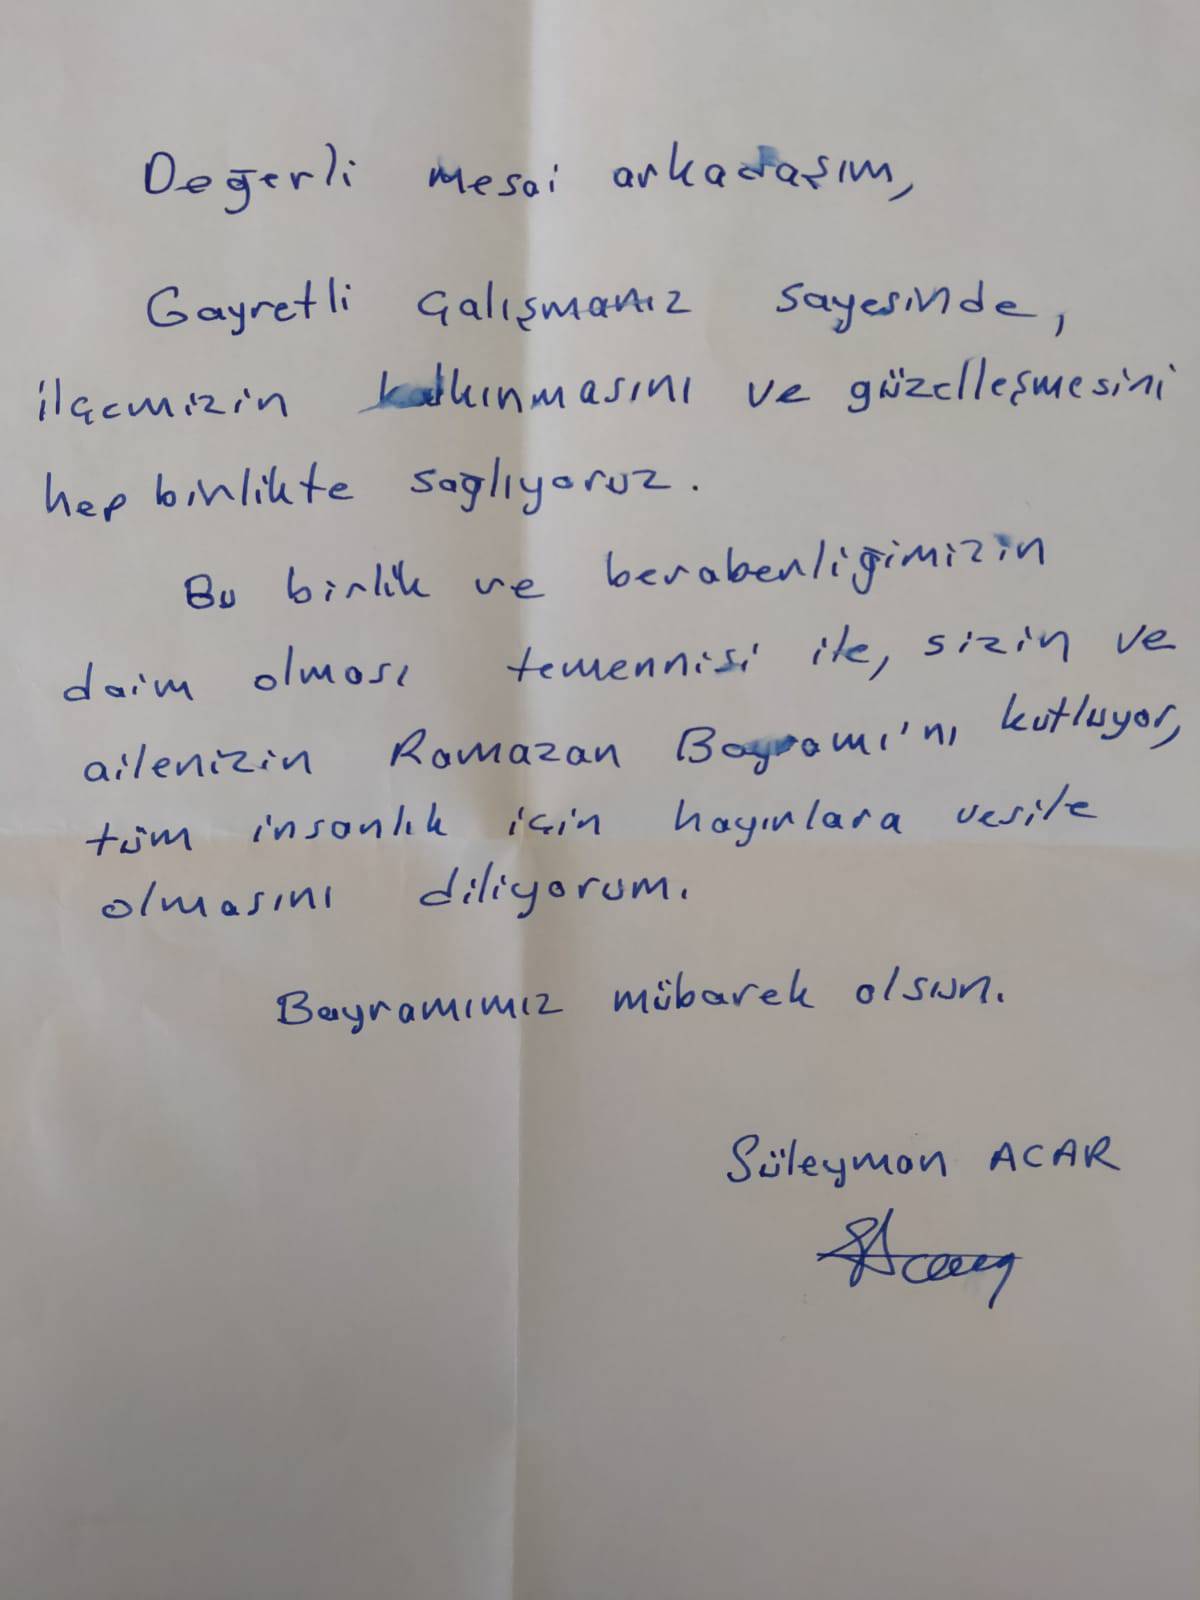 Değerli mesai arkadaşım,
Gayretli çalışmanız sayesinde,
ilçemizin kalkınmasını ve güzelleşmesini
hep birlikte sağlıyoruz.
Bu birlik ve beraberliğimizin
daim olması temennisi ile, sizin ve
ailenizin Ramazan Bayramı'nı kutluyor,
tüm insanlık için hayırlara vesile
olmasını diliyorum.
Bayramımız mübarek olsun.
Süleyman ACAR